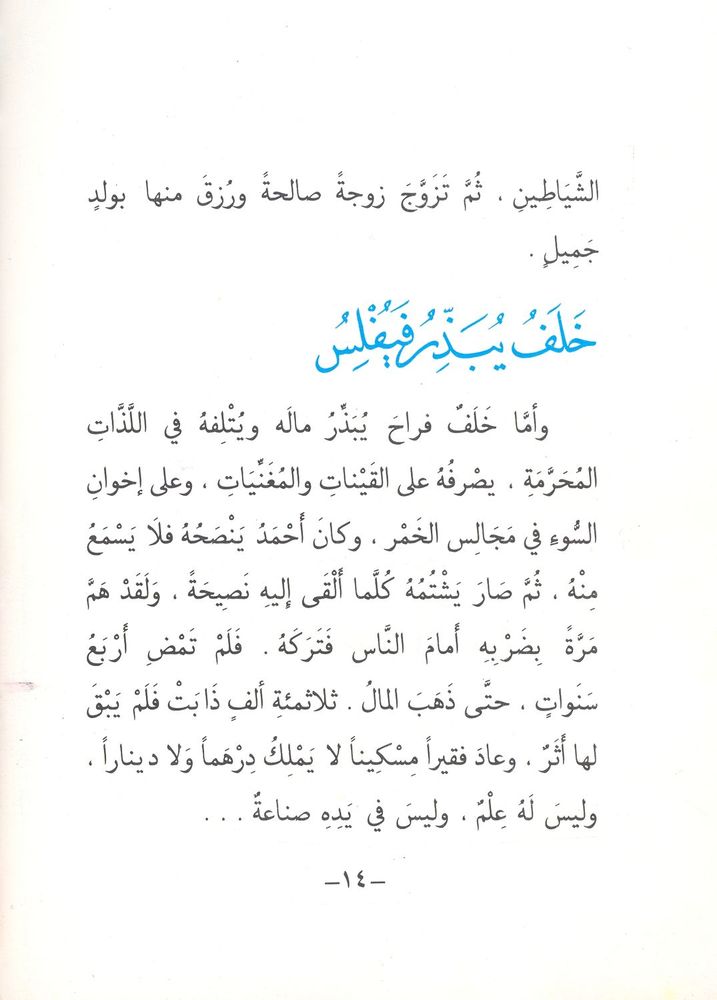 الشَّيَاطِينِ ، ثُمَّ تَزَوَّجَ زوجةً صالحةً ورُزِقَ منها بولدٍ
جَمِيلٍ .
خَلَفٌ يُبَذِّرُ فَيُفْلِسُ
وأمَّا خَلَفٌ فراحَ يُبَذِّرُ مالَه ويُتْلِفهُ في اللَّذَّاتِ
المُحَرَّمَةِ ، يصْرفُهُ على القَيْناتِ والمُغَنِّيَاتِ ، وعلى إخوانِ
السُّوءِ في مَجَالِسِ الخَمْر ، وكانَ أَحْمَدُ يَنْصَحُهُ فلَا يَسْمَعُ
مِنْهُ ، ثُمَّ صَارَ يَشْتُمُهُ كُلَّما أَلْقَى إِليهِ نَصِيحَةً ، وَلَقَدْ هَمَّ
مَرَّةً بِضَرْبِهِ أَمامَ النَّاس فَتَرَكَهُ . فَلَمْ تَمْضِ أَرْبَعُ
سَنَواتٍ ، حتَّى ذَهَبَ المالُ . ثلاثمئةِ ألفٍ ذَابَتْ فَلَمْ يَبْقَ
لها أَثَرٌ ، وعادَ فقيراً مِسْكِيناً لا يَمْلِكُ دِرْهَماً وَلا ديناراً ،
وليسَ لَهُ عِلْمٌ ، وليسَ في يَدِهِ صناعةٌ . . .
–١٤–